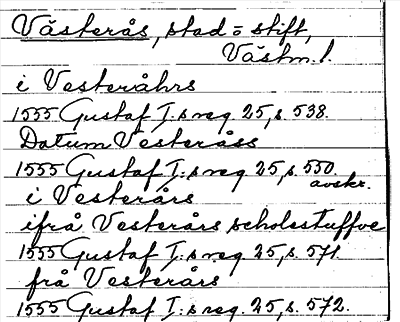 Västerås, stad o stift,
Västm. l.
i Vesteråhrs
1555 Gustaf I:s reg. 25, s. 538.
Datum Vesteråss
1555 Gustaf I:s reg. 25, s. 550.
avskr.
i Vesterårs
ifrå Vesterårs scholestuffve
1555 Gustaf I:s reg. 25, s. 571.
frå Vesterårs
1555 Gustaf I:s reg. 25, s. 572.